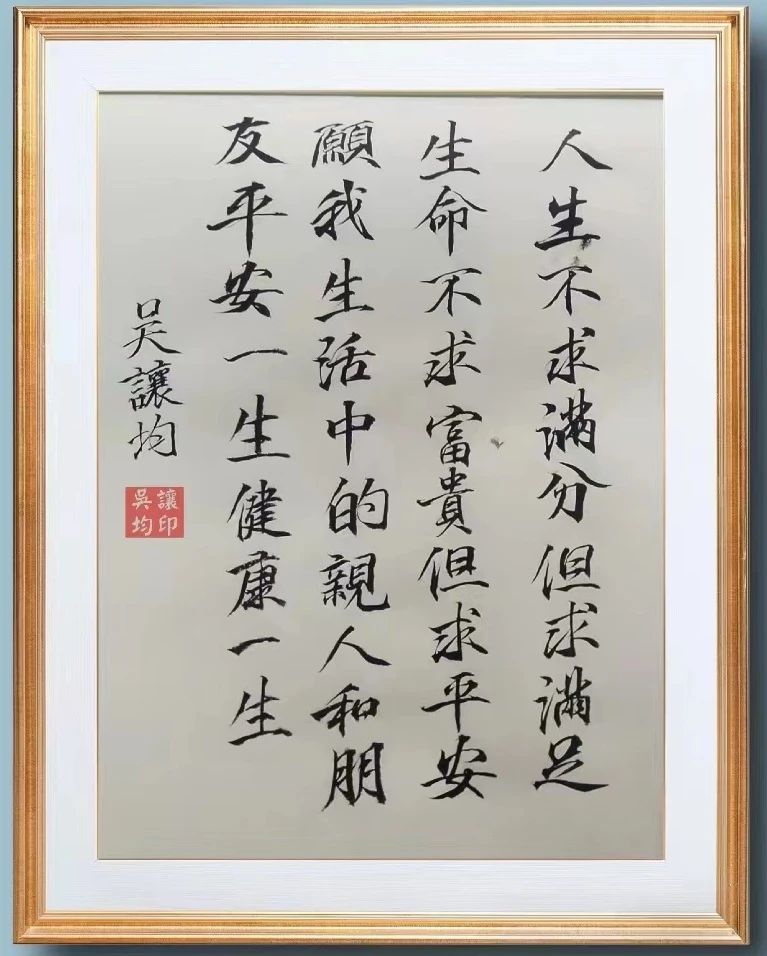 人生不求滿分但求滿足
生命不求富貴但求平安
願我生活中的親人和朋
友平安一生健康一生
吴讓均
讓印
吳均